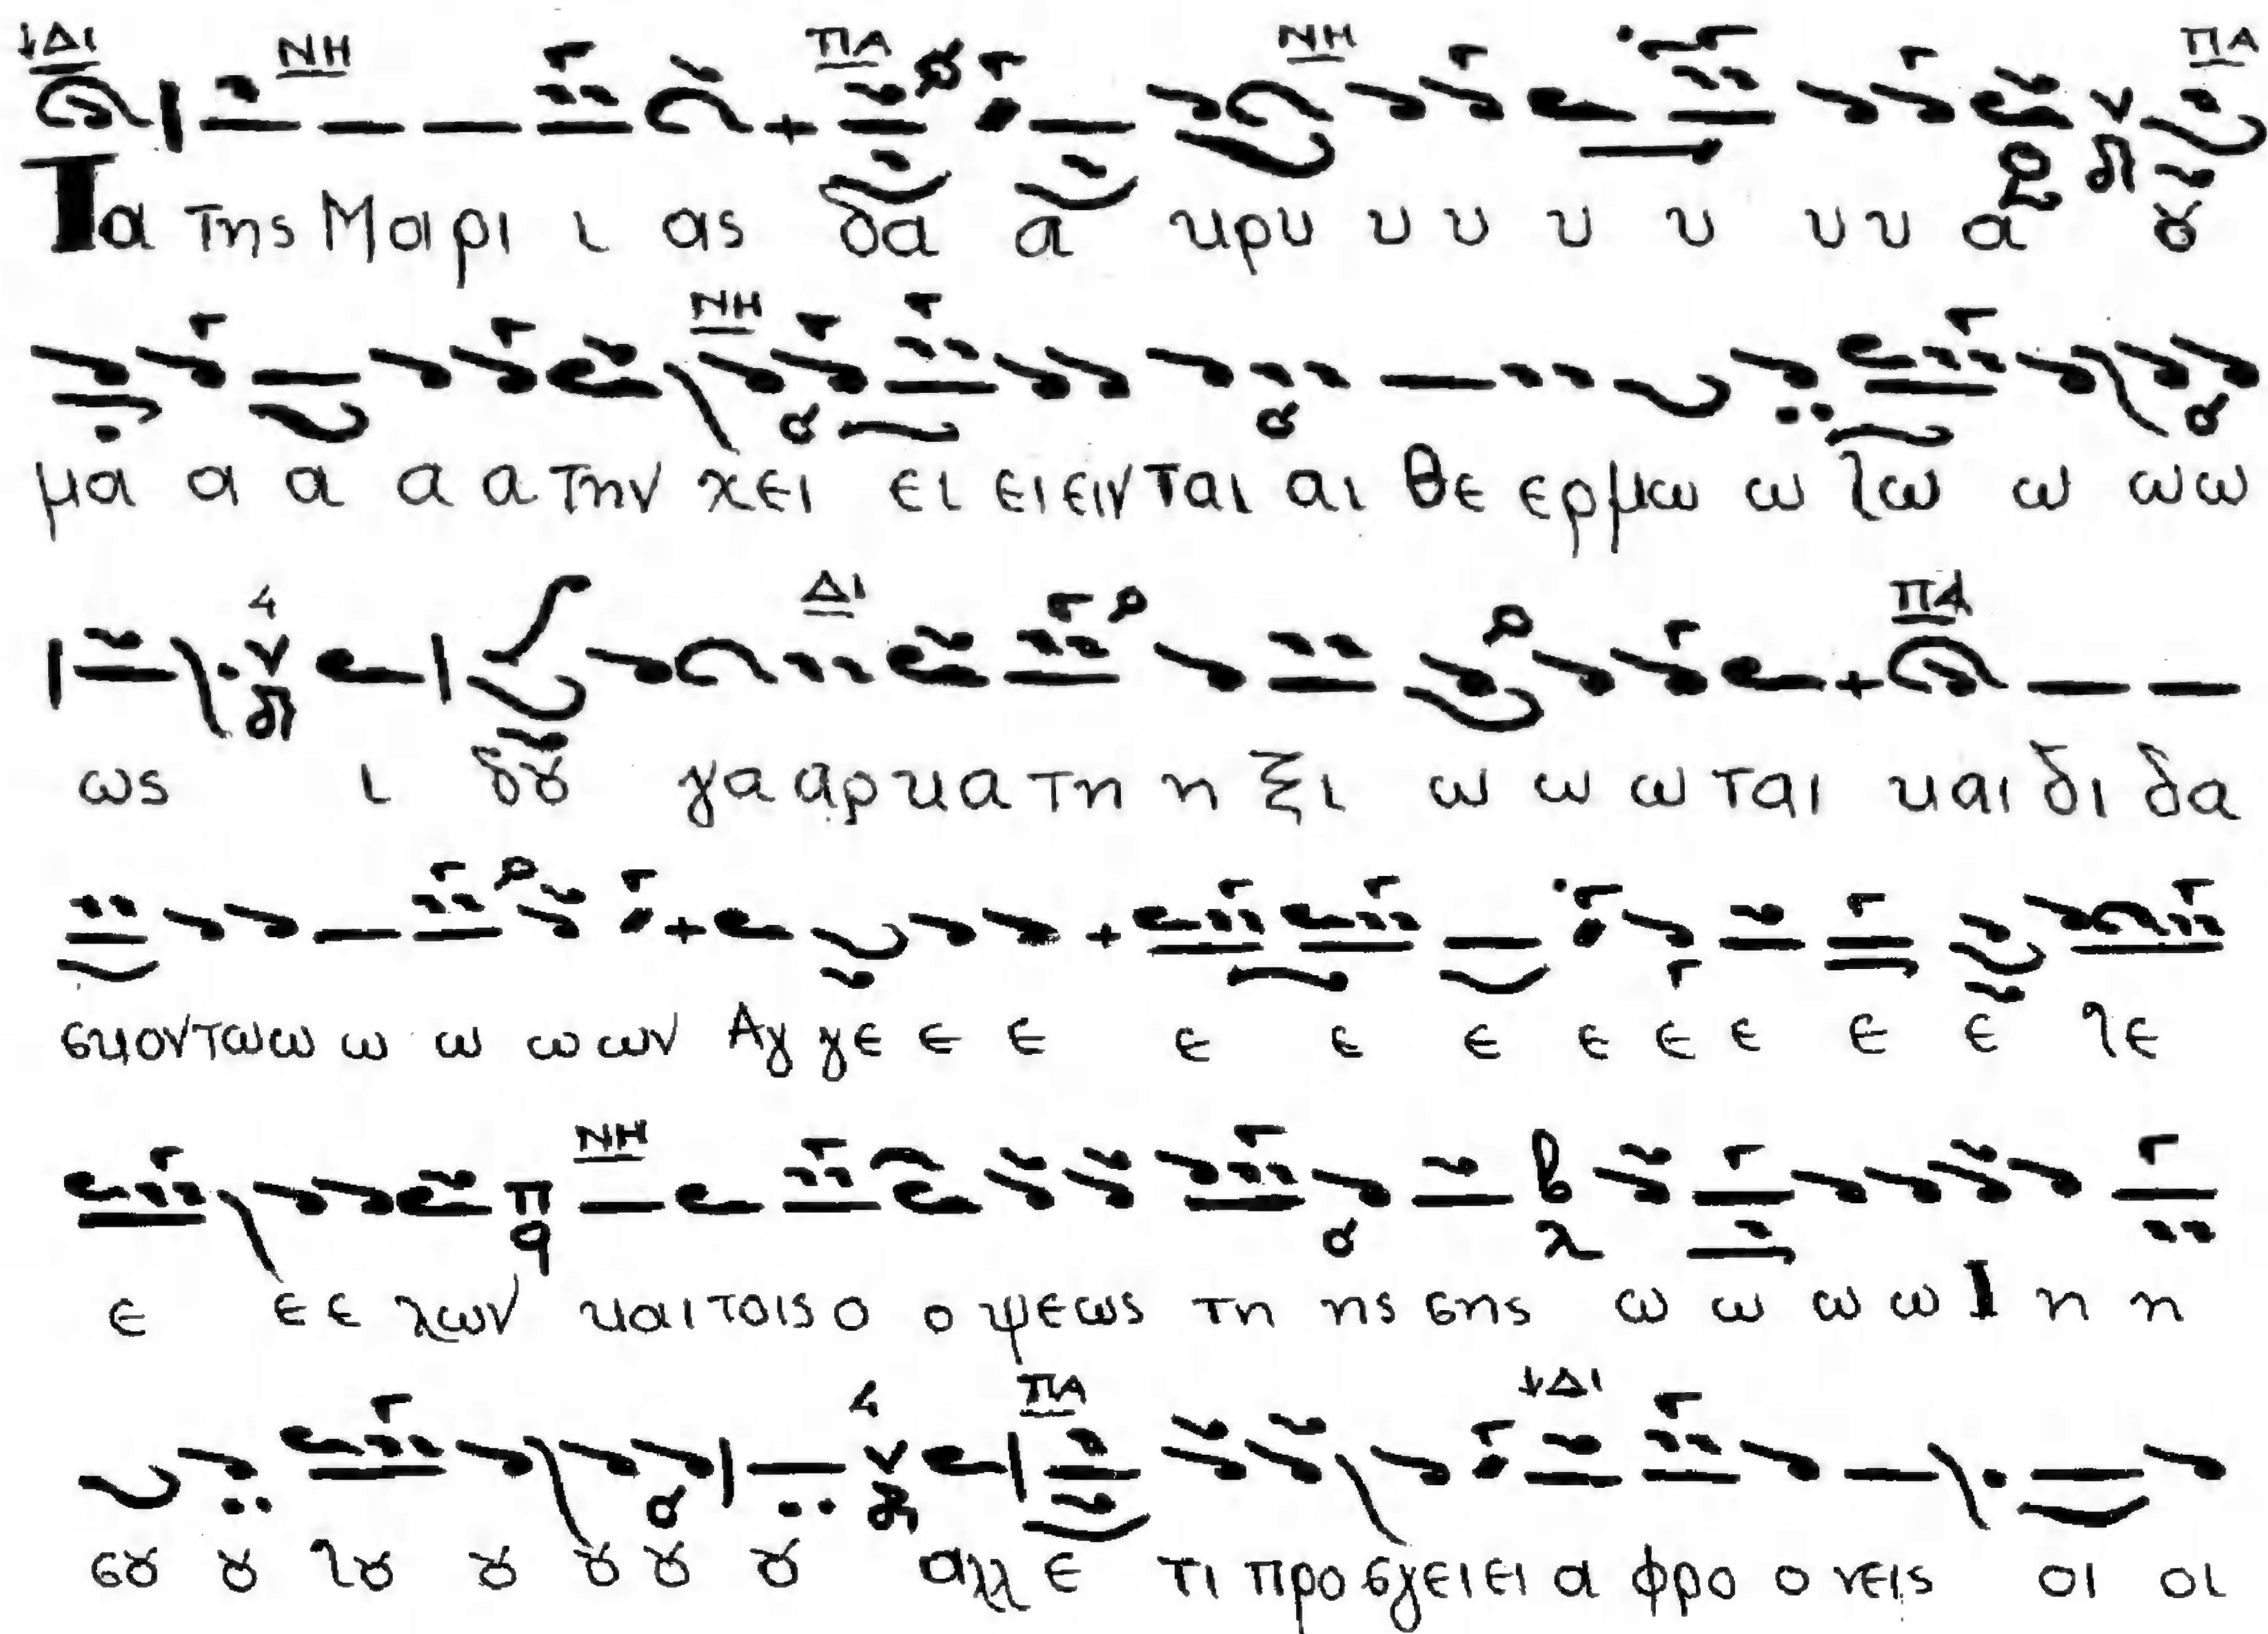 ↓ΔΙ ΝΗ ΠΑ ΝΗ ΠΑ
Τα της Μα ρι ι ας δα α κρυ υ υ υ υ υυ α ȣ
ΝΗ
μα α α α α την χει ει ει ειν ται αι θε ερμω ω λω ω ωω
4 ΔΙ ΠΑ
ως ι δȣ γα αρ κα τη η ξι ω ω ω ται και δι δα
σκοντωω ω ω ω ων Αγ γε ε ε ε ε ε ε ε ε ε ε λε
ΝΗ
ε ε ε λων και τοις ο ο ψεως τη ης σης ω ω ω ω Ι η η
4 ΠΑ ↓ΔΙ
σȣ ȣ λȣ ȣ ȣ ȣ ȣ αλλ ε τι προ σγει ει α φρο ο νεις οι οι